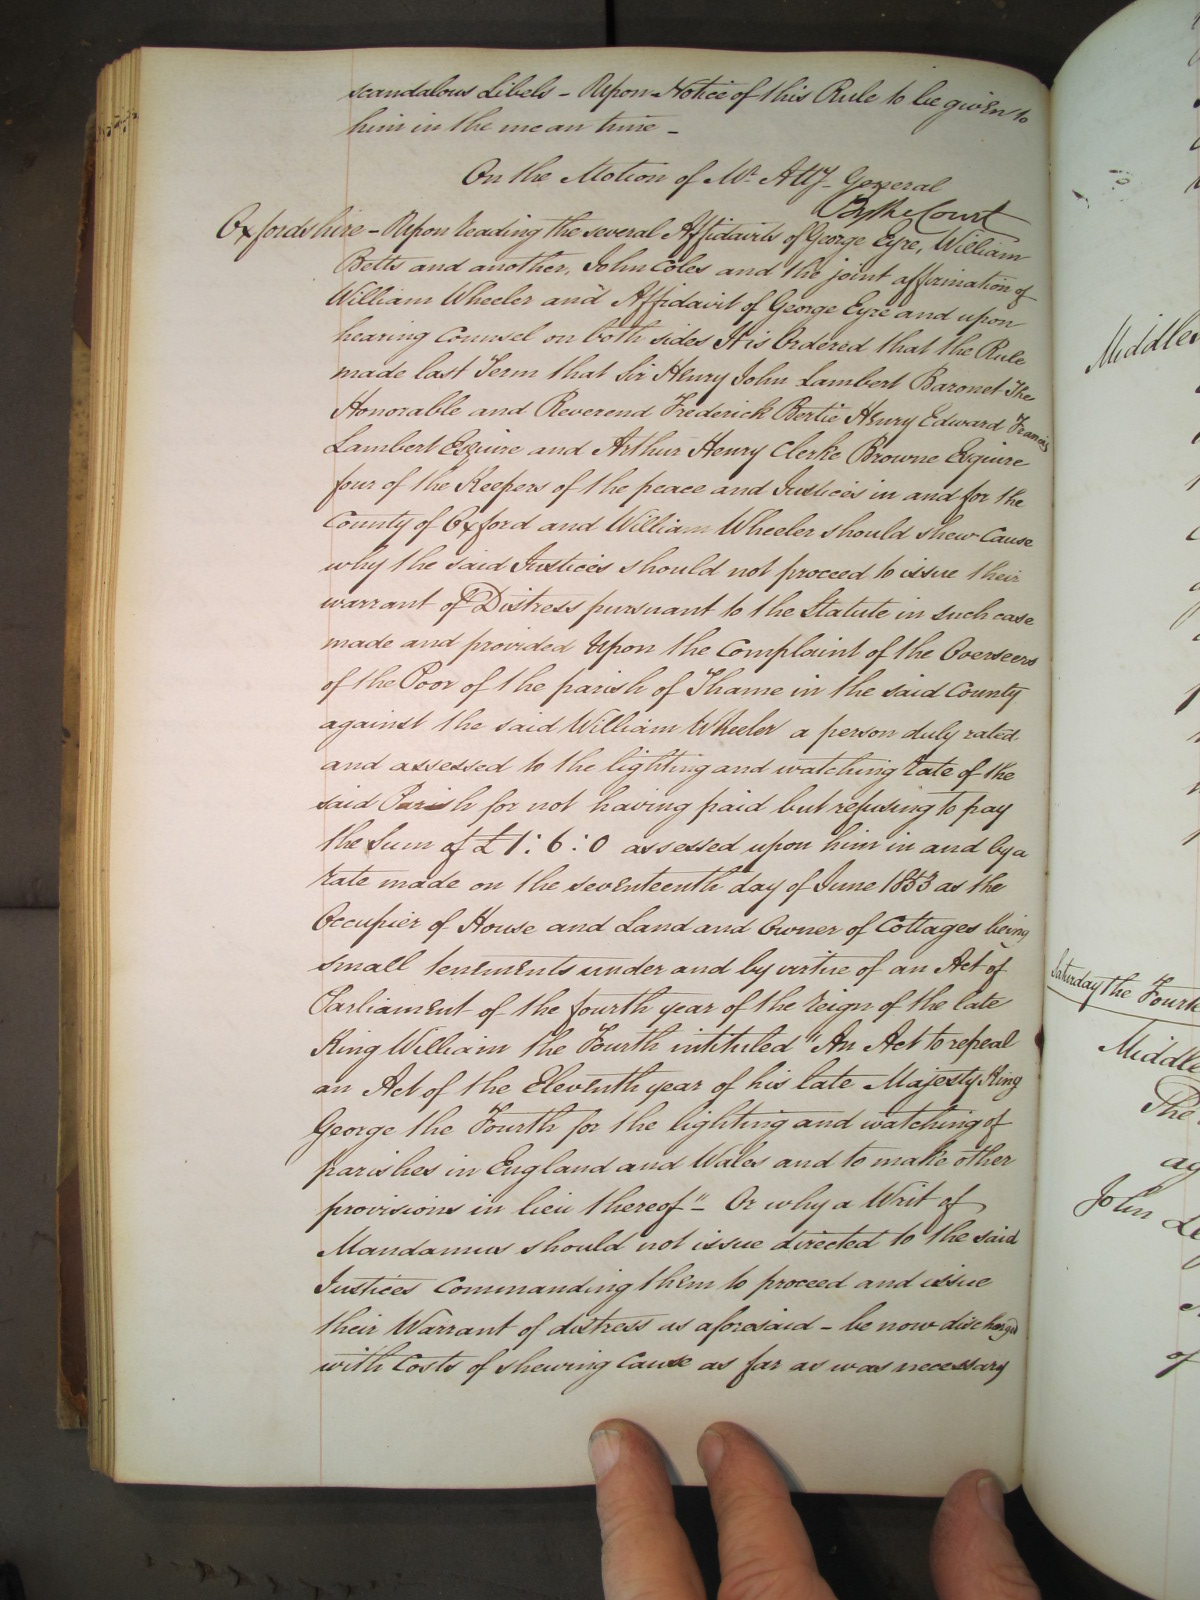 scandalous Libels – Upon Notice of this Rule to be given to
him in the mean time –
On the Motion of Mr. Atty. General
By the Court
Oxfordshire – Upon reading the several Affidavits of George Eyre, William
Betts and another, John Coles and the joint affirmation of
William Wheeler and Affidavit of George Eyre and upon
hearing Counsel on both sides It is Ordered that the Rule
made last Term that Sir Henry John Lambert Baronet The
Honorable and Reverend Frederick Bertie Henry Edward Francis
Lambert Esquire and Arthur Henry Clerke Browne Esquire
four of the Keepers of the peace and Justices in and for the
County of Oxford and William Wheeler should shew Cause
why the said Justices should not proceed to issue their
warrant of Distress pursuant to the Statute in such case
made and provided Upon the Complaint of the Overseers
of the Poor of the parish of Thame in the said County
against the said William Wheeler a person duly rated
and assessed to the lighting and watching rate of the
said Parish for not having paid but refusing to pay
the Sum of £1: 6: 0 assessed upon him in and by a
rate made on the seventeenth day of June 1853 as the
Occupier of House and Land and Owner of Cottages being
small tenements under and by virtue of an Act of
Parliament of the fourth year of the reign of the late
King William the Fourth intituled "An Act to repeal
an Act of the Eleventh year of his late Majesty King
George the Fourth for the lighting and watching of
parishes in England and Wales and to make other
provisions in lieu thereof" – Or why a Writ of
Mandamus should not issue directed to the said
Justices Commanding them to proceed and issue
their Warrant of distress as aforesaid – be now discharged
with Costs of shewing Cause as far as was necessary
Middles
Saturday the Fourth
Middle
The
ag
John Le
of